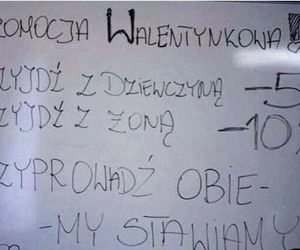 ROMOCJA WALENTYNKOWA!
ZYJDŹ Z DZIEWCZYNĄ -5
ZYJDŹ Z ŻONĄ -10
ZYPROWADŹ OBIE-
-MY STAWIAMY